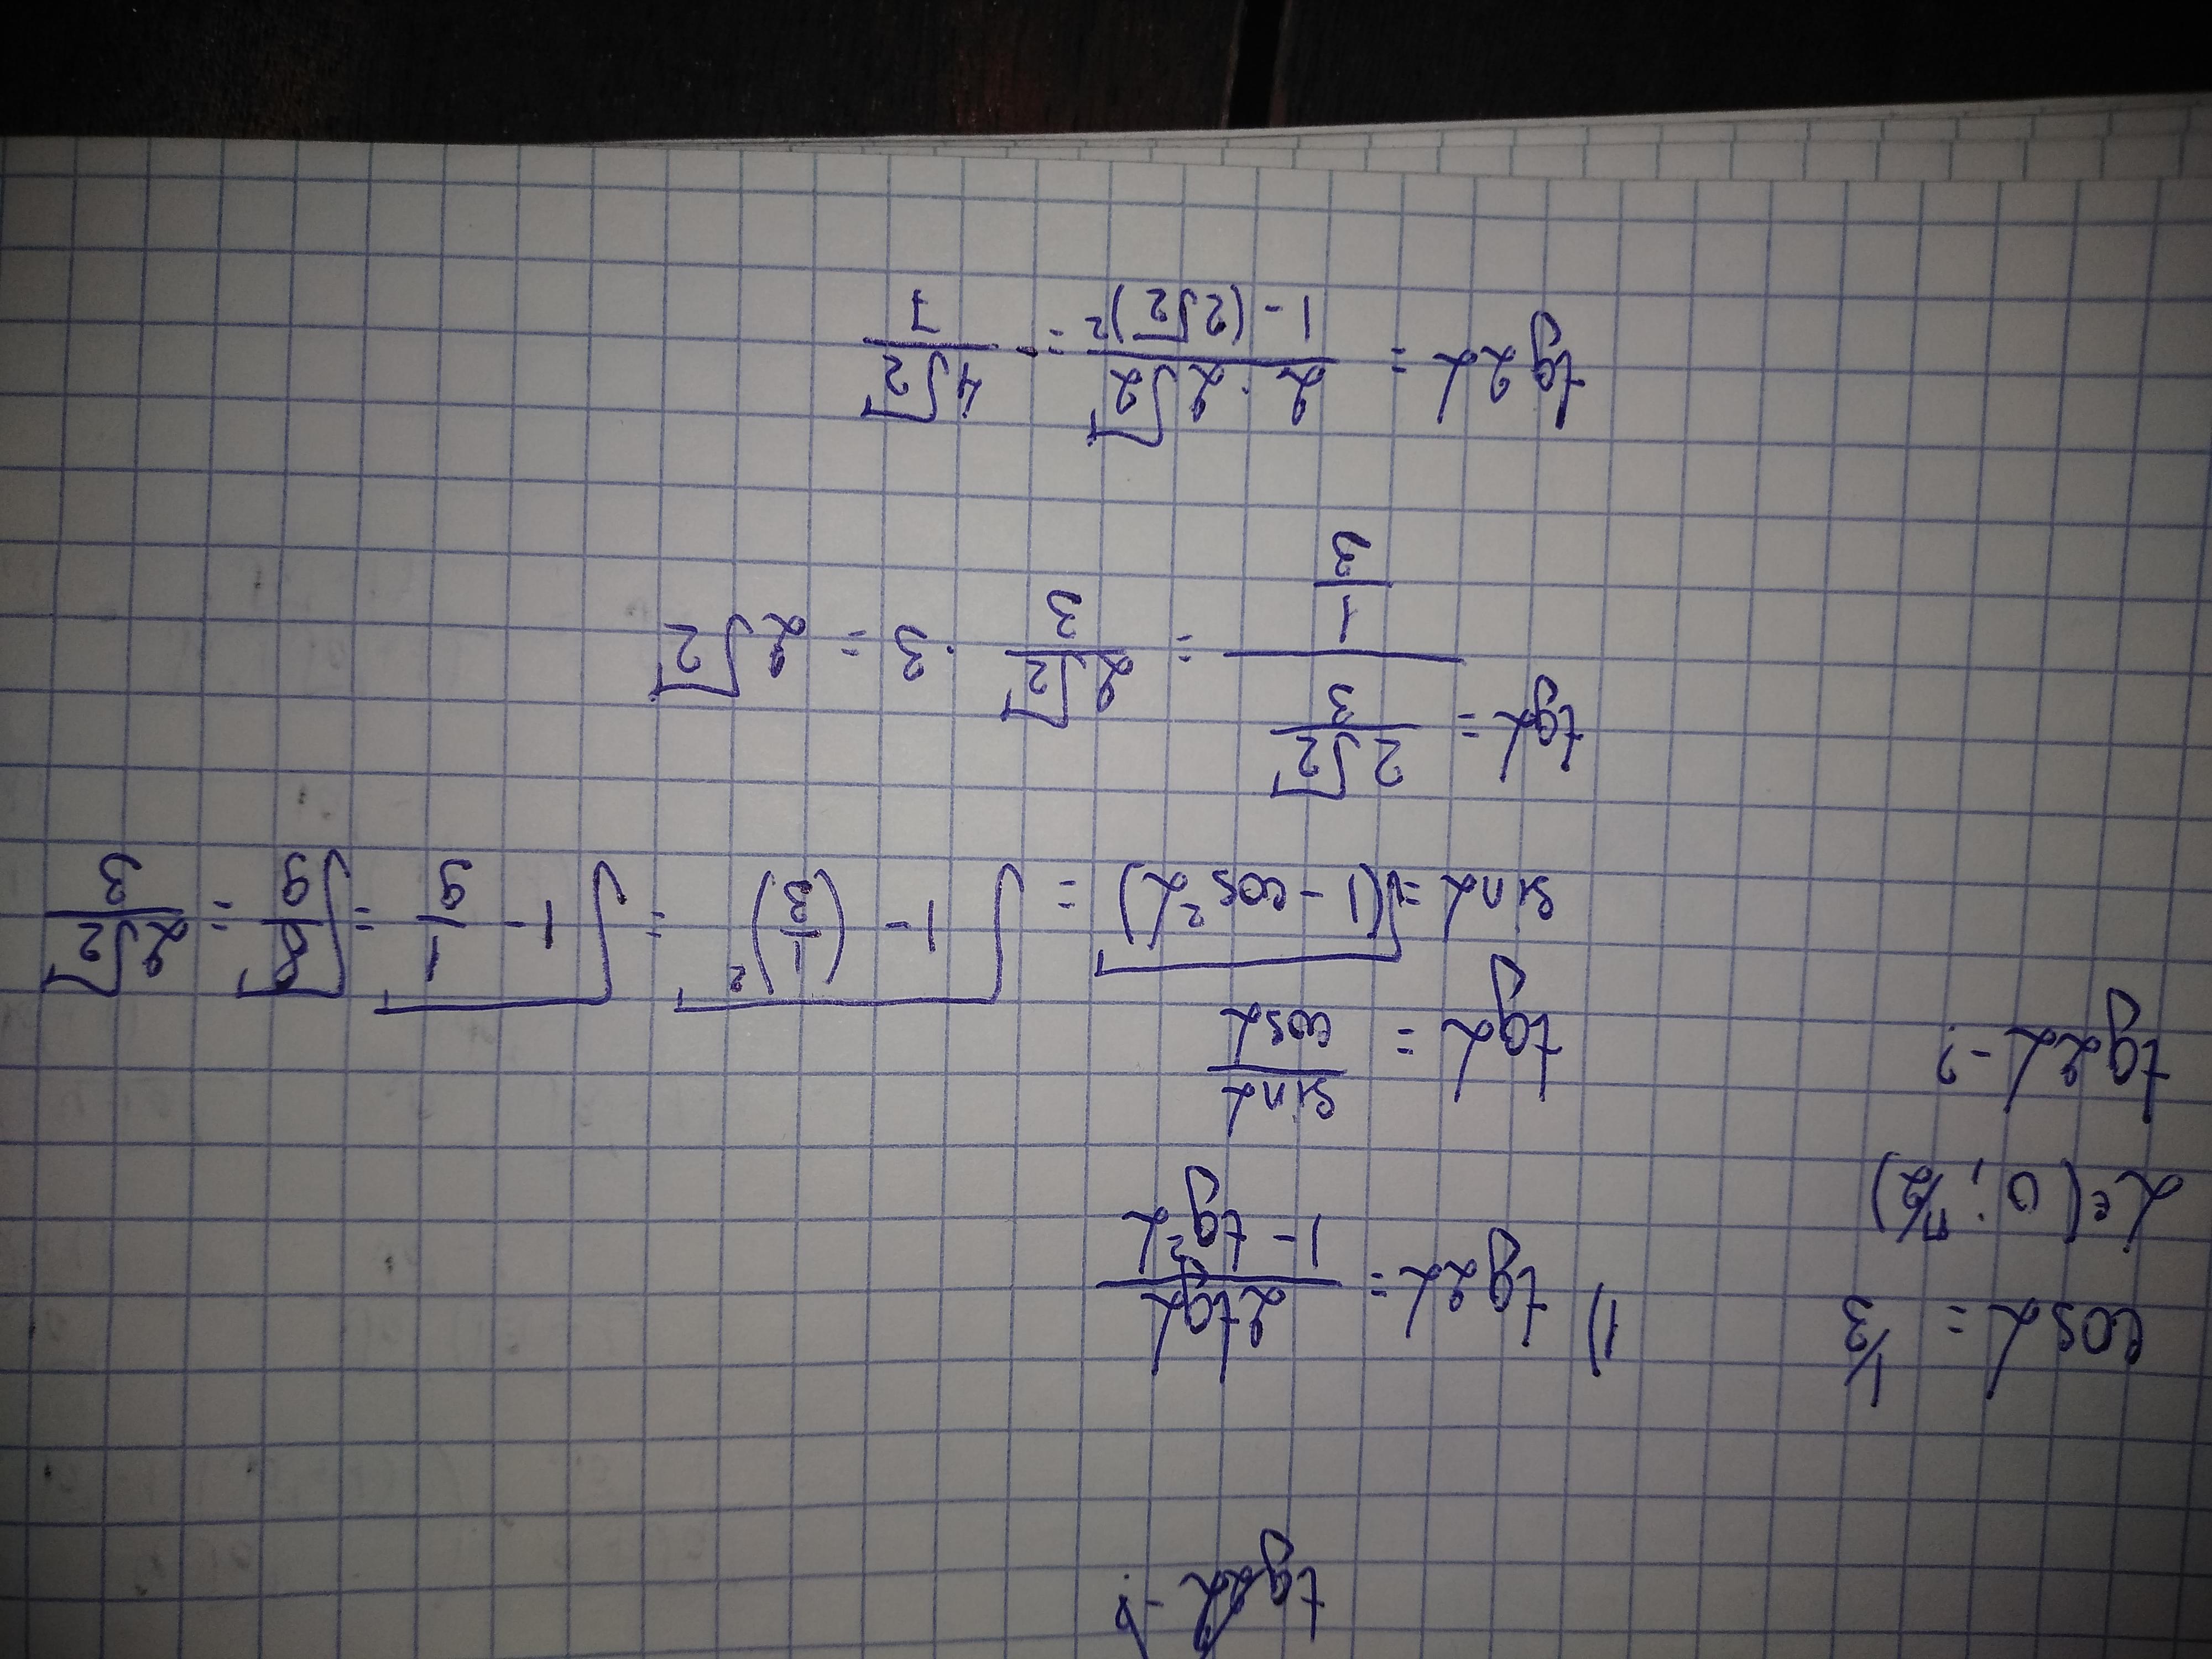 tg2α - ?
cosα = 1/3
α ∈ (0; π/2)
tg2α - ?
1) tg2α = 2tgα / (1 - tg²α)
tgα = sinα / cosα
sinα = √(1 - cos²α) = √(1 - (1/3)²) = √(1 - 1/9) = √(8/9) = 2√2 / 3
tgα = (2√2 / 3) / (1/3) = 2√2 / 3 · 3 = 2√2
tg2α = 2 · 2√2 / (1 - (2√2)²) = - 4√2 / 7